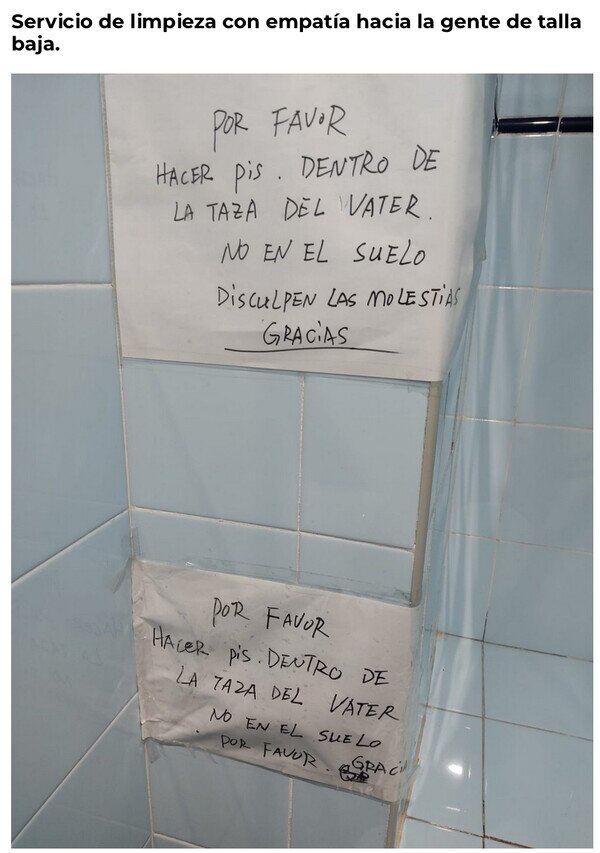 Servicio de limpieza con empatía hacia la gente de talla
baja.
POR FAVOR
HACER pis. DENTRO DE
LA TAZA DEL VATER.
NO EN EL SUELO
DISCULPEN LAS MOLESTIAS
GRACIAS
POR FAVOR
HACER pis. DENTRO DE
LA TAZA DEL VATER
NO EN EL SUELO
POR FAVOR. GRACI